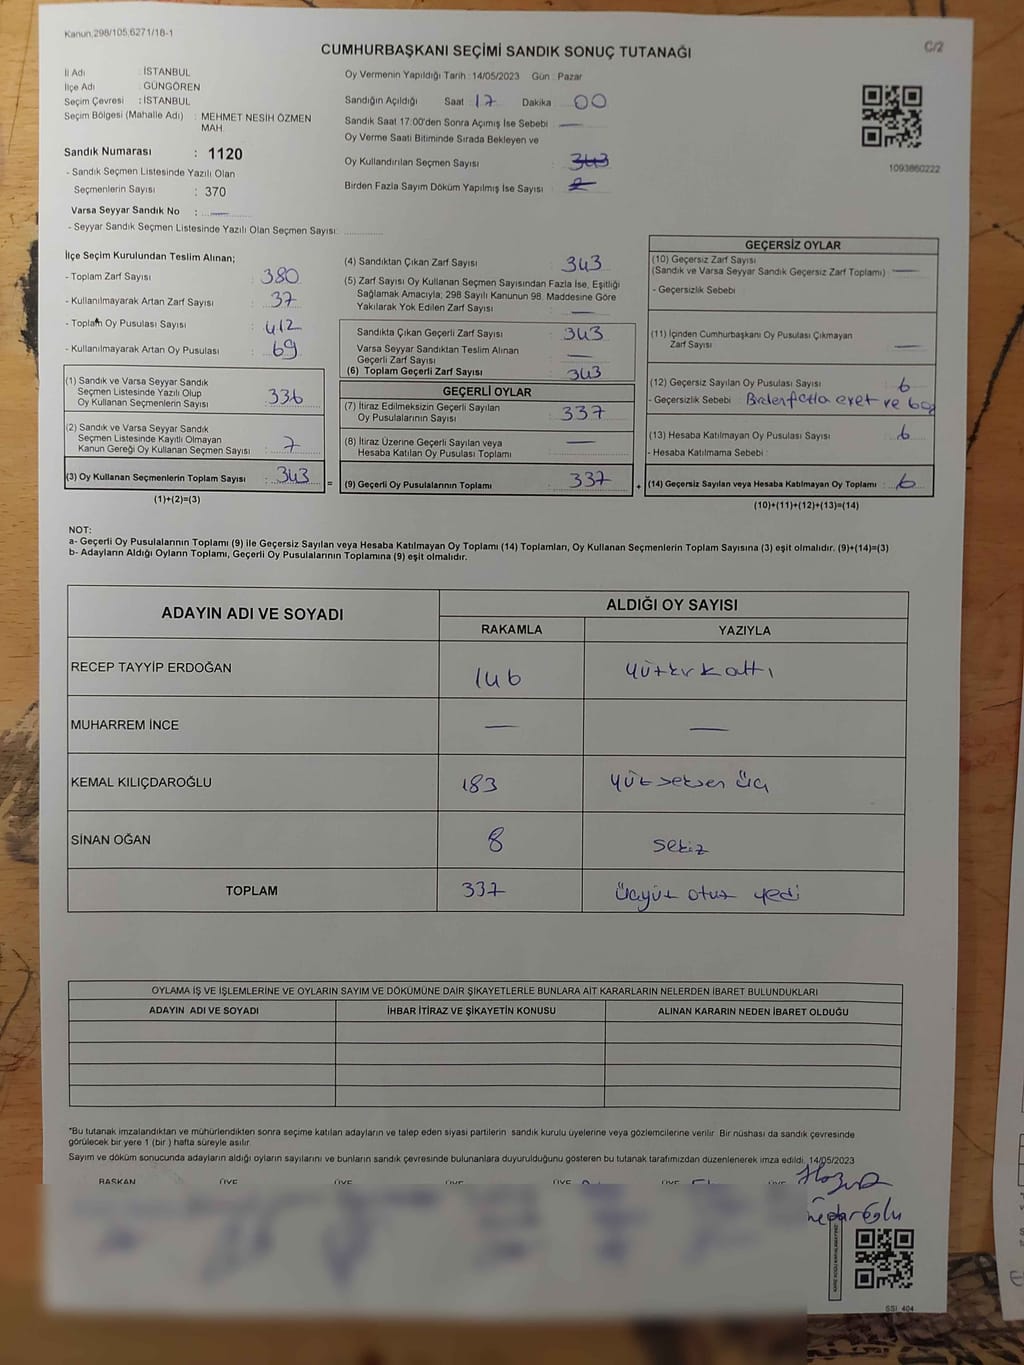 Kanun,298/105,6271/18-1
C/2
CUMHURBAŞKANI SEÇİMİ SANDIK SONUÇ TUTANAĞI
İl Adı : İSTANBUL
İlçe Adı : GÜNGÖREN
Seçim Çevresi : İSTANBUL
Seçim Bölgesi (Mahalle Adı) : MEHMET NESİH ÖZMEN
MAH.
Sandık Numarası : 1120
- Sandık Seçmen Listesinde Yazılı Olan
Seçmenlerin Sayısı : 370
Varsa Seyyar Sandık No : —
- Seyyar Sandık Seçmen Listesinde Yazılı Olan Seçmen Sayısı:
Oy Vermenin Yapıldığı Tarih : 14/05/2023 Gün : Pazar
Sandığın Açıldığı Saat 17 Dakika 00
Sandık Saat 17:00'den Sonra Açımış İse Sebebi : —
Oy Verme Saati Bitiminde Sırada Bekleyen ve
Oy Kullandırılan Seçmen Sayısı : 343
Birden Fazla Sayım Döküm Yapılmış İse Sayısı :
1093860222
İlçe Seçim Kurulundan Teslim Alınan;
- Toplam Zarf Sayısı : 380
- Kullanılmayarak Artan Zarf Sayısı : 37
- Toplam Oy Pusulası Sayısı : 412
- Kullanılmayarak Artan Oy Pusulası : 69
(1) Sandık ve Varsa Seyyar Sandık
Seçmen Listesinde Yazılı Olup
Oy Kullanan Seçmenlerin Sayısı : 336
(2) Sandık ve Varsa Seyyar Sandık
Seçmen Listesinde Kayıtlı Olmayan
Kanun Gereği Oy Kullanan Seçmen Sayısı : 7
(3) Oy Kullanan Seçmenlerin Toplam Sayısı : 343
(1)+(2)=(3)
=
(4) Sandıktan Çıkan Zarf Sayısı : 343
(5) Zarf Sayısı Oy Kullanan Seçmen Sayısından Fazla İse, Eşitliği
Sağlamak Amacıyla; 298 Sayılı Kanunun 98. Maddesine Göre
Yakılarak Yok Edilen Zarf Sayısı : —
Sandıkta Çıkan Geçerli Zarf Sayısı : 343
Varsa Seyyar Sandıktan Teslim Alınan
Geçerli Zarf Sayısı : —
(6) Toplam Geçerli Zarf Sayısı : 343
GEÇERLİ OYLAR
(7) İtiraz Edilmeksizin Geçerli Sayılan
Oy Pusulalarının Sayısı : 337
(8) İtiraz Üzerine Geçerli Sayılan veya
Hesaba Katılan Oy Pusulası Toplamı : —
(9) Geçerli Oy Pusulalarının Toplamı : 337
+
GEÇERSİZ OYLAR
(10) Geçersiz Zarf Sayısı
(Sandık ve Varsa Seyyar Sandık Geçersiz Zarf Toplamı) : —
- Geçersizlik Sebebi :
(11) İçinden Cumhurbaşkanı Oy Pusulası Çıkmayan
Zarf Sayısı : —
(12) Geçersiz Sayılan Oy Pusulası Sayısı : 6
- Geçersizlik Sebebi : evet ve
(13) Hesaba Katılmayan Oy Pusulası Sayısı : 6
- Hesaba Katılmama Sebebi :
(14) Geçersiz Sayılan veya Hesaba Katılmayan Oy Toplamı : 6
(10)+(11)+(12)+(13)=(14)
NOT:
a- Geçerli Oy Pusulalarının Toplamı (9) ile Geçersiz Sayılan veya Hesaba Katılmayan Oy Toplamı (14) Toplamları, Oy Kullanan Seçmenlerin Toplam Sayısına (3) eşit olmalıdır. (9)+(14)=(3)
b- Adayların Aldığı Oyların Toplamı, Geçerli Oy Pusulalarının Toplamına (9) eşit olmalıdır.
ADAYIN ADI VE SOYADI ALDIĞI OY SAYISI
RAKAMLA YAZIYLA
RECEP TAYYİP ERDOĞAN 146 yüzkırkaltı
MUHARREM İNCE — —
KEMAL KILIÇDAROĞLU 183 yüzseksen üç
SİNAN OĞAN 8 sekiz
TOPLAM 337 üçyüz otuz yedi
OYLAMA İŞ VE İŞLEMLERİNE VE OYLARIN SAYIM VE DÖKÜMÜNE DAİR ŞİKAYETLERLE BUNLARA AİT KARARLARIN NELERDEN İBARET BULUNDUKLARI
ADAYIN ADI VE SOYADI İHBAR İTİRAZ VE ŞİKAYETİN KONUSU ALINAN KARARIN NEDEN İBARET OLDUĞU
*Bu tutanak imzalandıktan ve mühürlendikten sonra seçime katılan adayların ve talep eden siyasi partilerin sandık kurulu üyelerine veya gözlemcilerine verilir. Bir nüshası da sandık çevresinde
görülecek bir yere 1 (bir ) hafta süreyle asılır.
Sayım ve döküm sonucunda adayların aldığı oyların sayılarını ve bunların sandık çevresinde bulunanlara duyurulduğunu gösteren bu tutanak tarafımızdan düzenlenerek imza edildi. 14/05/2023
BAŞKAN ÜYE ÜYE ÜYE ÜYE ÜYE
SSI_404